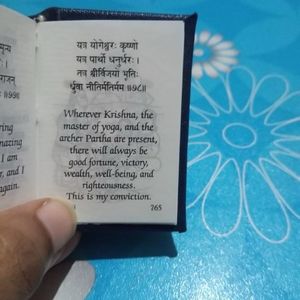 मृत्य
राजन्
॥७७॥
ering
nazing
I am
nd I
again.
यत्र योगेश्वरः कृष्णो
यत्र पार्थो धनुर्धरः ।
तत्र श्रीर्विजयो भूतिः
र्ध्रुवा नीतिर्मतिर्मम ॥७८॥
Wherever Krishna, the
master of yoga, and the
archer Partha are present,
there will always be
good fortune, victory,
wealth, well-being, and
righteousness.
This is my conviction.
765